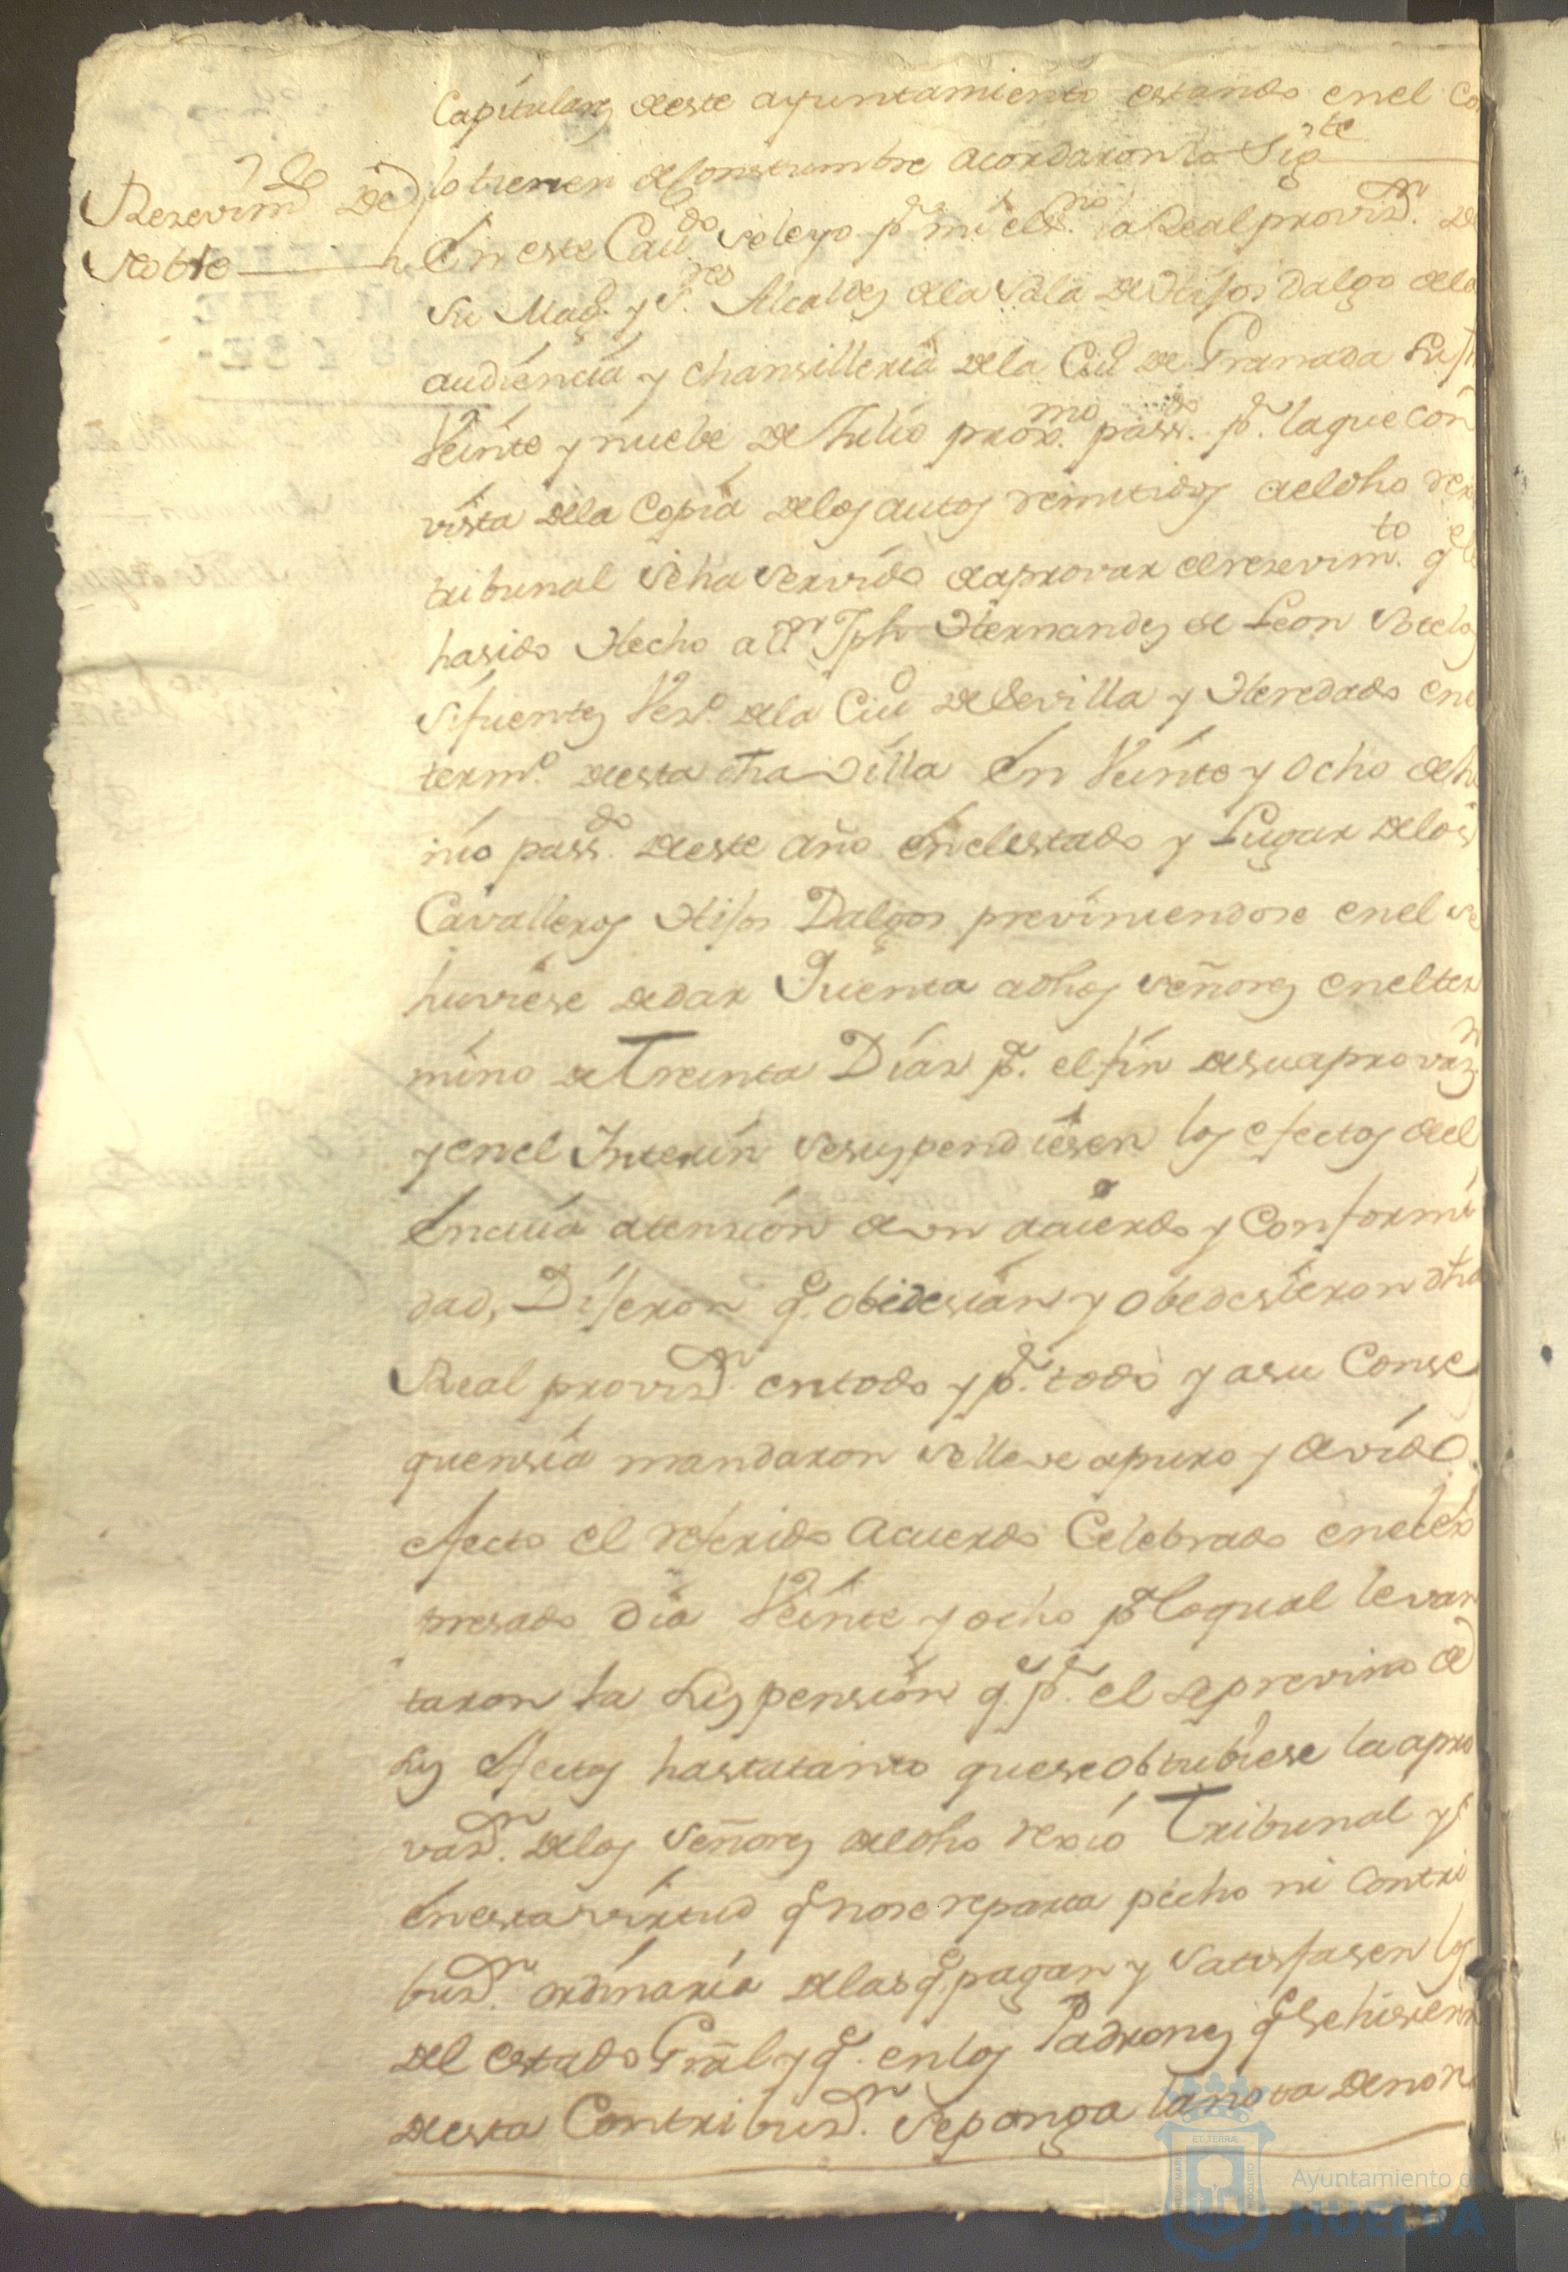 Capitulares deste ayuntamiento estando en el Co
Resevimto de
Noble
lo tienen de Constumbre acordaron lo Sigte
En este Cavdo se leyo pr mi el esno la Real provisn de
Su Magd y Sres Alcaldes de la Sala de Hijos dalgo de la
audiencia y chansilleria de la Ciud de Granada Su fh
Veinte y nuebe de Julio proxmo passdo pr la que con
vista de la Copia de los autos remitidos a el dho rexo
tribunal se ha servido de aprovar el resevimto qe le
ha sido Hecho a Dn Jph Hernandes de Leon
Sifuentes Veso de la Ciud de Sevilla y Heredado en el
termo desta dha Villa En Veinte y Ocho de Ju
nio passdo deste año En el estado y Lugar de los
Cavalleros Hijos Dalgos previniendose en el se
huviese de dar Quenta a dhos señores en el ter
mino de Treinta Dias pa el fin de su aprovasn
y en el Interin se suspendiesen los efectos del
En cuia atension de un acuerdo y Conformi
dad, Dijeron qe obedesian y obedesieron dha
Real provisn en todo y pr todo y a su Conse
quensia mandaron se lleve a puro y devido
efecto el referido acuerdo Celebrado en el ex
presado dia Veinte y ocho pr lo qual levan
taron la Suspension qe pr el se previno de
Sus Efectos hasta tanto que se obtubiese la apro
vasn de los Señores de dho rexio Tribunal y
En esta virtud qe no se reparta pecho ni Contri
busn ordinaria de las qe pagan y Satisfasen los
del estado Gral y qe en los Padrones qe Se hisieren
desta Contribusn se ponga la nota de no
ET TERRÆ
Ayuntamiento de
HUELVA